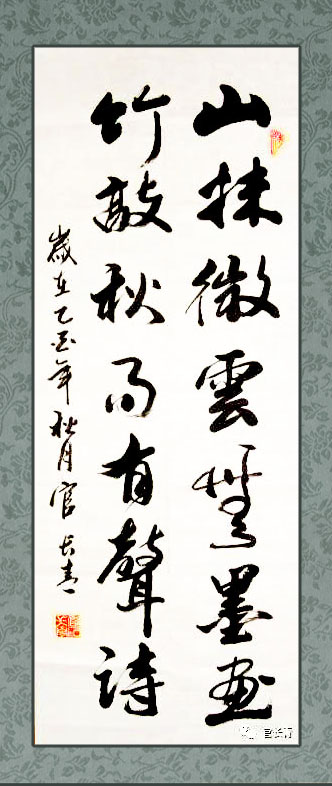 山抹微雲無墨畫
竹敲秋雨有聲詩
歲在乙酉年秋月官長青